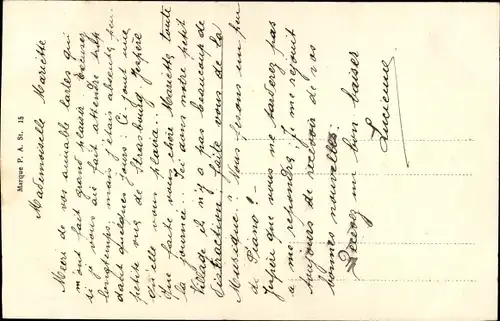 Marque P. A. St. 15
Mademoiselle Mariette
Merci de vos aimable cartes qui
m'ont fait grand plaisir Excusez
si je vous ai fait attendre si
longtemps, mais j'étais absente pen-
dant quelques jours. Ci joint une
petite vue de Strasbourg J'espère
qu'elle vous plaira..
Que faite vous chère Mariette toute
la journée. Ici dans notre petit
village il n'y a pas beaucoup de
Distraction, faite vous de la
Musique? Nous ferons un peu
de Piano! -
J'espère que vous ne tarderez pas
a me repondre, je me rejouit
toujours de recevoir de vos
bonnes nouvelles.
Recevez un bon baiser
Lucienne